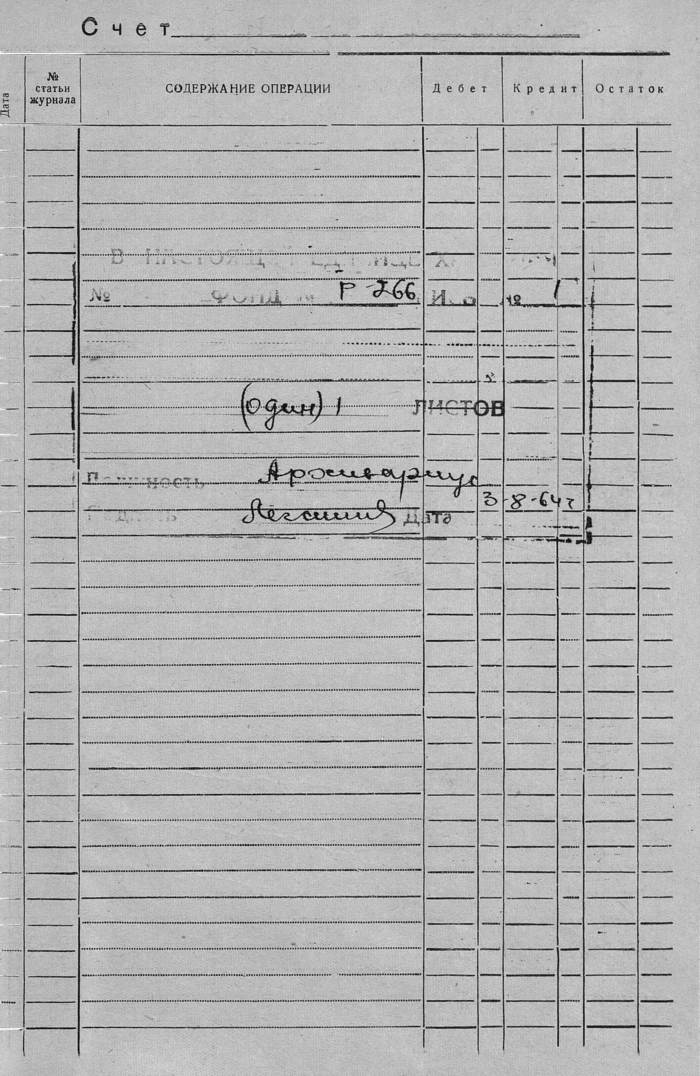 Счет
Дата
№ статьи журнала
СОДЕРЖАНИЕ ОПЕРАЦИИ
Дебет
Кредит
Остаток
В НАСТОЯЩЕЙ ЕДИНИЦЕ
№ ФОНД № Р-266 № 1
(один) 1 ЛИСТОВ
Должность Архивариус
Подпись Дата 3-8-64г